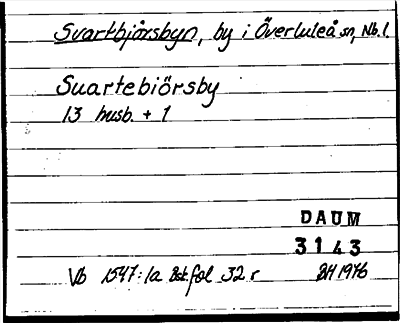 Svartbjörsbyn, by i Överluleå sn, Nb. l.
Suartebiörsby
13 husb. + 1
DAUM
3143
Vb 1547:1a fol 32 r BH 1976